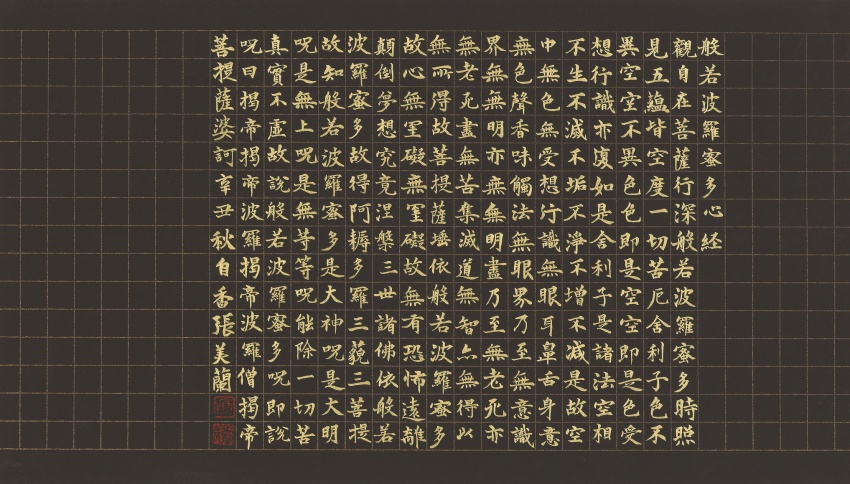 般若波羅蜜多心経
觀自在菩薩行深般若波羅蜜多時照
見五蘊皆空度一切苦厄舍利子色不
異空空不異色色即是空空即是色受
想行識亦復如是舍利子是諸法空相
不生不滅不垢不淨不增不减是故空
中無色無受想行識無眼耳鼻舌身意
無色聲香味觸法無眼界乃至無意識
界無無明亦無無明盡乃至無老死亦
無老死盡無苦集滅道無智亦無得以
無所得故菩提薩埵依般若波羅蜜多
故心無罣礙無罣礙故無有恐怖遠離
顛倒夢想究竟涅槃三世諸佛依般若
波羅蜜多故得阿耨多羅三藐三菩提
故知般若波羅蜜多是大神呪是大明
呪是無上呪是無等等呪能除一切苦
真實不虛故說般若波羅蜜多呪即說
呪曰揭帝揭帝波羅揭帝波羅僧揭帝
菩提薩婆訶辛丑秋自香張美蘭